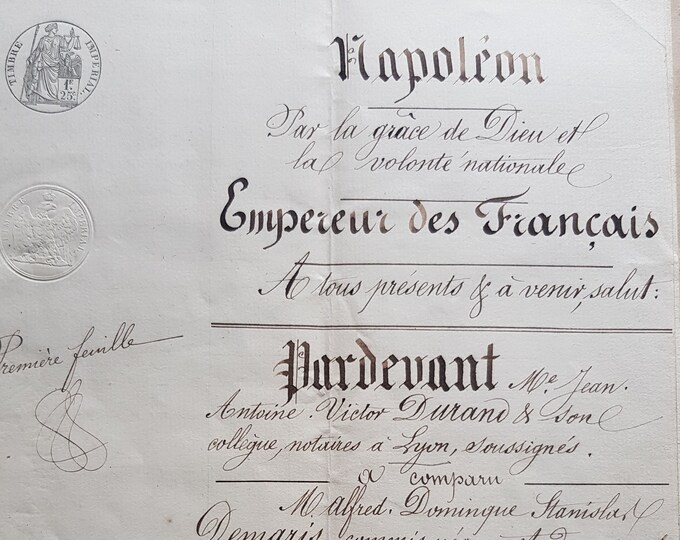 TIMBRE IMPERIAL
1F.
25c.
Napoléon
Par la grâce de Dieu et
la volonté nationale
Empereur des Français
A tous présents & à venir, salut :
Première feuille
Pardevant Me. Jean.
Antoine. Victor Durand & son
collègue, notaires à Lyon, soussignés.
a comparu
M. Alfred. Domingue Stanislas
Demaris